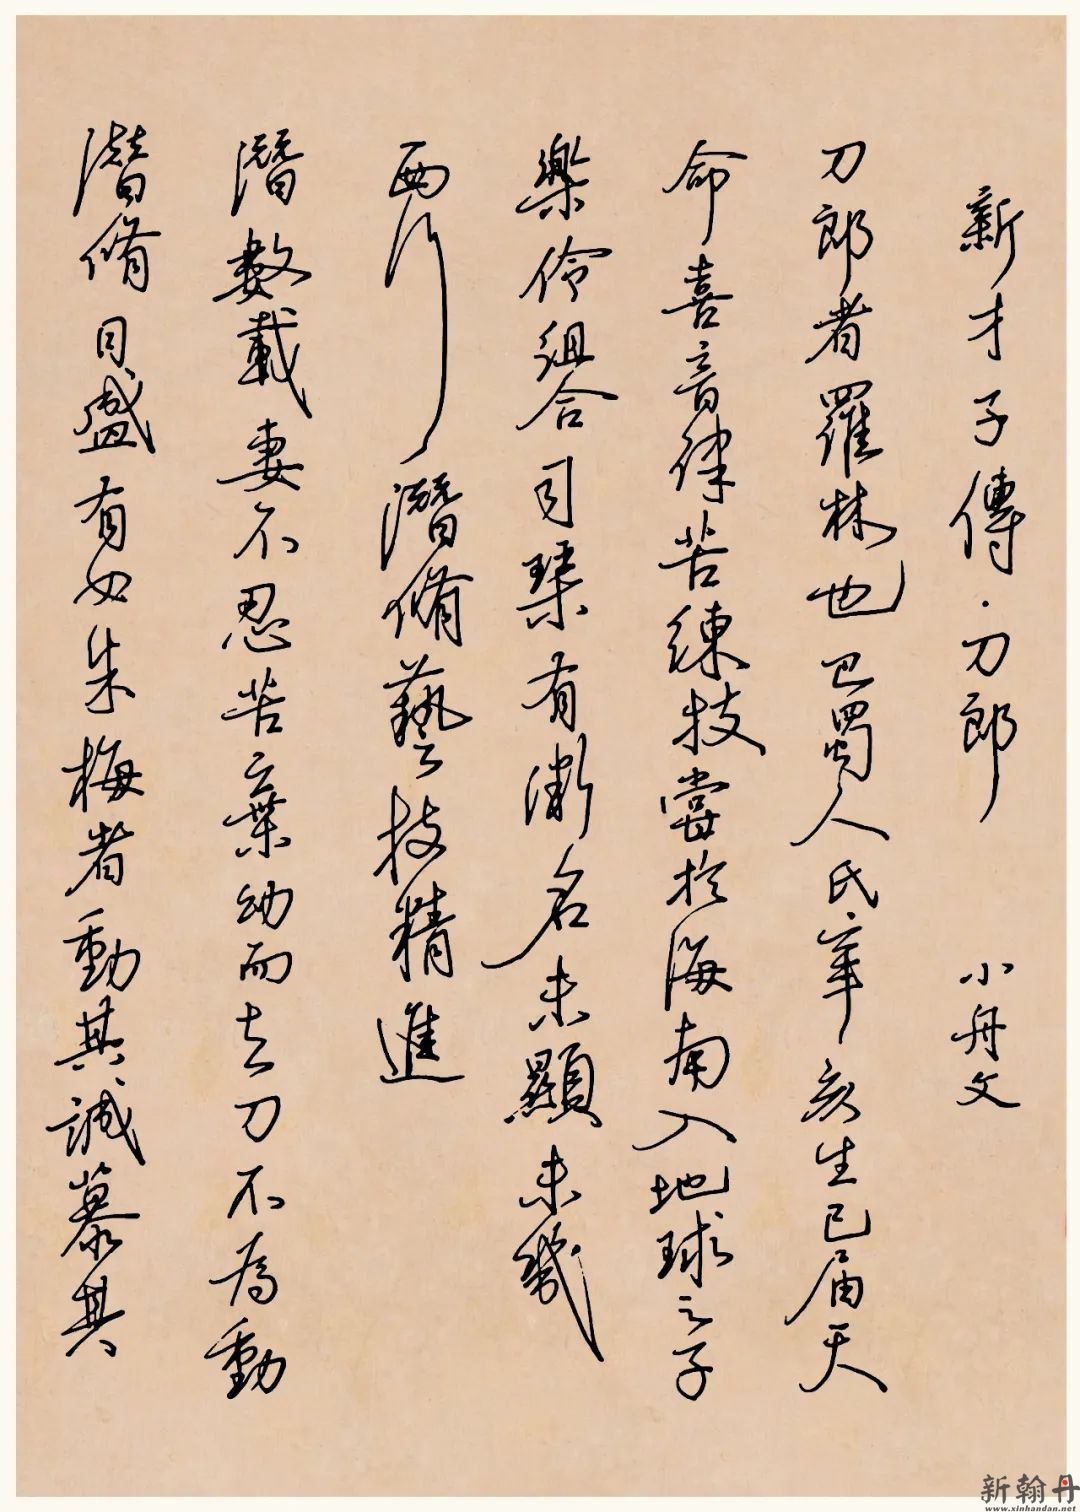 新才子傳·刀郎 小舟文
刀郎者羅林也巴蜀人氏辛亥生已届天
命喜音律苦練技嘗於海南入地球之子
樂伶組合司琹有漸名未顯未幾
西行潛脩藝技精進
潛數載妻不忍苦棄幼而去刀不為動
潛脩日盛有女朱梅者動其誠慕其
新翰丹
www.xinhandan.net